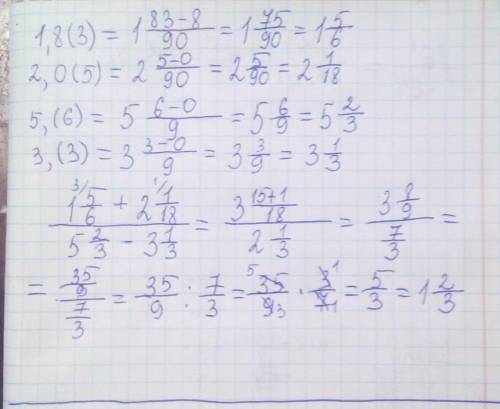 1,8(3) = 1 83-8/90 = 1 75/90 = 1 5/6
2,0(5) = 2 5-0/90 = 2 5/90 = 2 1/18
5,(6) = 5 6-0/9 = 5 6/9 = 5 2/3
3,(3) = 3 3-0/9 = 3 3/9 = 3 1/3
(1 ³⁾5/6 + 2 ¹⁾1/18)/(5 2/3 - 3 1/3) = (3 15+1/18)/(2 1/3) = (3 8/9)/(7/3) =
= (35/9)/(7/3) = 35/9 : 7/3 = ⁵35/9₃ · 3¹/7₁ = 5/3 = 1 2/3